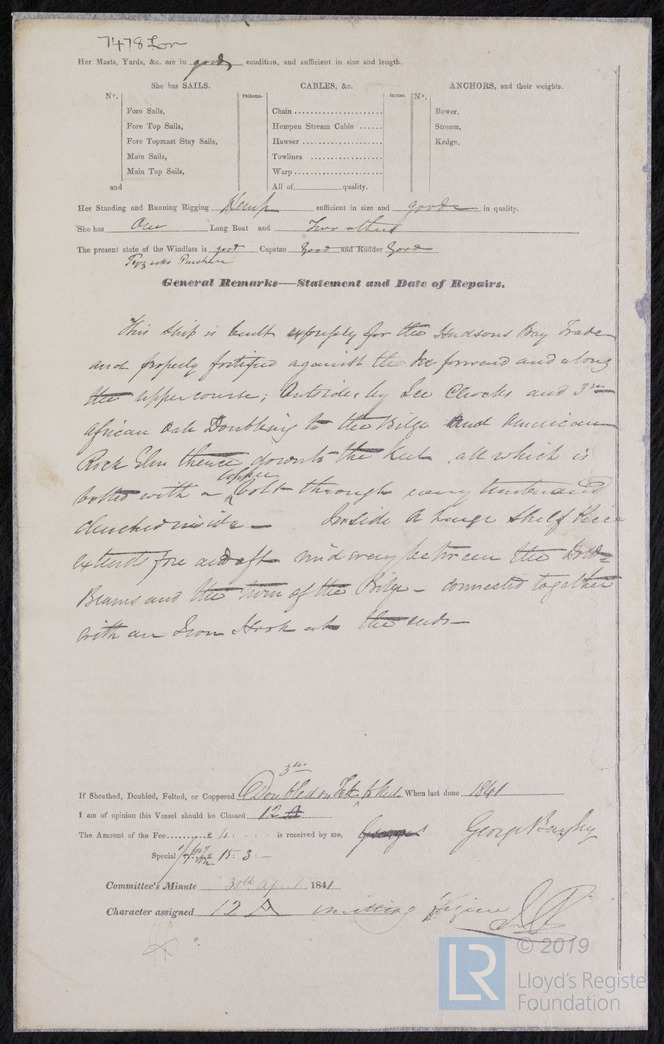 7478 Lon
Her Masts, Yards, &c. are in good condition, and sufficient in size and length.
She has SAILS.
CABLES, &c.
ANCHORS, and their weights.
No.
Fathoms.
Inches.
No.
Fore Sails,
Fore Top Sails,
Fore Topmast Stay Sails,
Main Sails,
Main Top Sails,
and
Chain
Hempen Stream Cable
Hawser
Towlines
Warp
All of quality.
Bower,
Stream,
Kedge,
Her Standing and Running Rigging Hemp sufficient in size and good in quality.
She has One Long Boat and Two others
The present state of the Windlass is good Capstan Good and Rudder Good
Purchase
General Remarks—Statement and Date of Repairs.
This Ship is built expressly for the Hudsons Bay Trade
and properly fortified against the Ice forward and along
the upper course; Outside, by Ice Chocks and 3 in
African Oak Doubling to the Bilge and American
Rock Elm thence downto the Keel. all which is
bolted with a copper bolt through every timber and
clenched inside — Inside a large Shelf Piece
extends fore and aft midway between the Hold
Beams and the turn of the Bilge — connected together
with an Iron Hook at the ends —
3 in
If Sheathed, Doubled, Felted, or Coppered Doubled When last done 1841
I am of opinion this Vessel should be Classed 12 A
The Amount of the Fee £ 4 : is received by me, George Bayley
Special 15. 3. —
Committee's Minute 30th April 1841
Character assigned 12 A omitting
© 2019
LR
Lloyd's Registe
Foundation